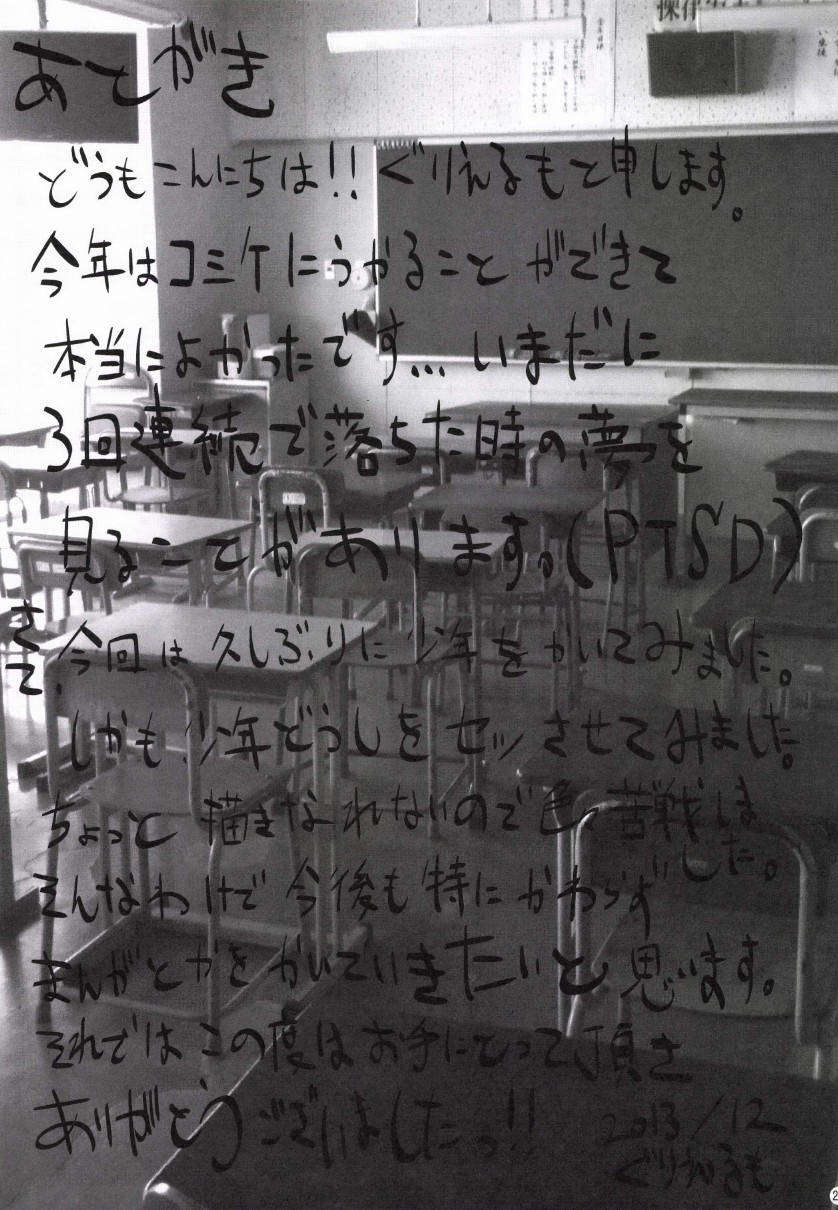 あとがき
どうもこんにちは!! ぐりえるもと申します。
今年はコミケにうかることができて
本当によかったです... いまだに
3回連続で落ちた時の夢を
見ることがあります。(PTSD)
さて、今回は久しぶりに少年をかいてみました。
しかも少年どうしをセッさせてみました。
ちょっと描きなれないので色々苦戦しました。
そんなわけで今後も特にかわらず
まんがとかをかいていきたいと思います。
それではこの度はお手にとって頂き
ありがとうございましたっ!!
2013/12
ぐりえるも